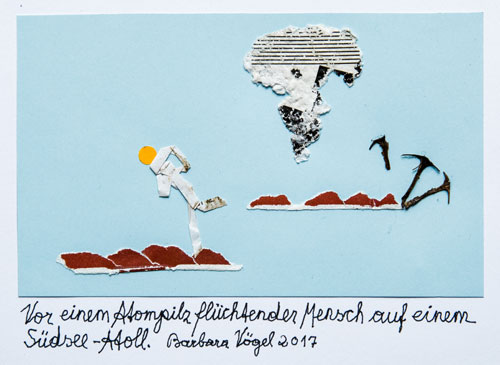 Vor einem Atompilz flüchtender Mensch auf einem
Südsee-Atoll. Barbara Vögel 2017